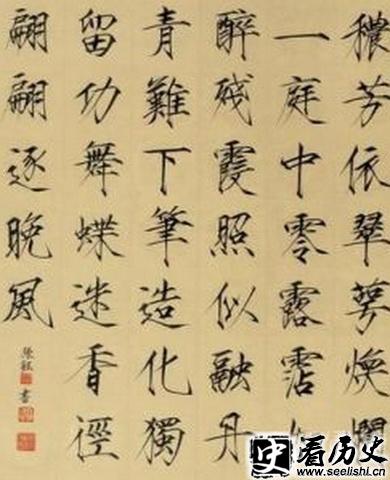 穠芳依翠萼煥爛
一庭中零露霑
醉殘霞照似融丹
青難下筆造化獨
留功舞蝶迷香徑
翩翩逐晚風
書
史 看历史
www.seelishi.cn